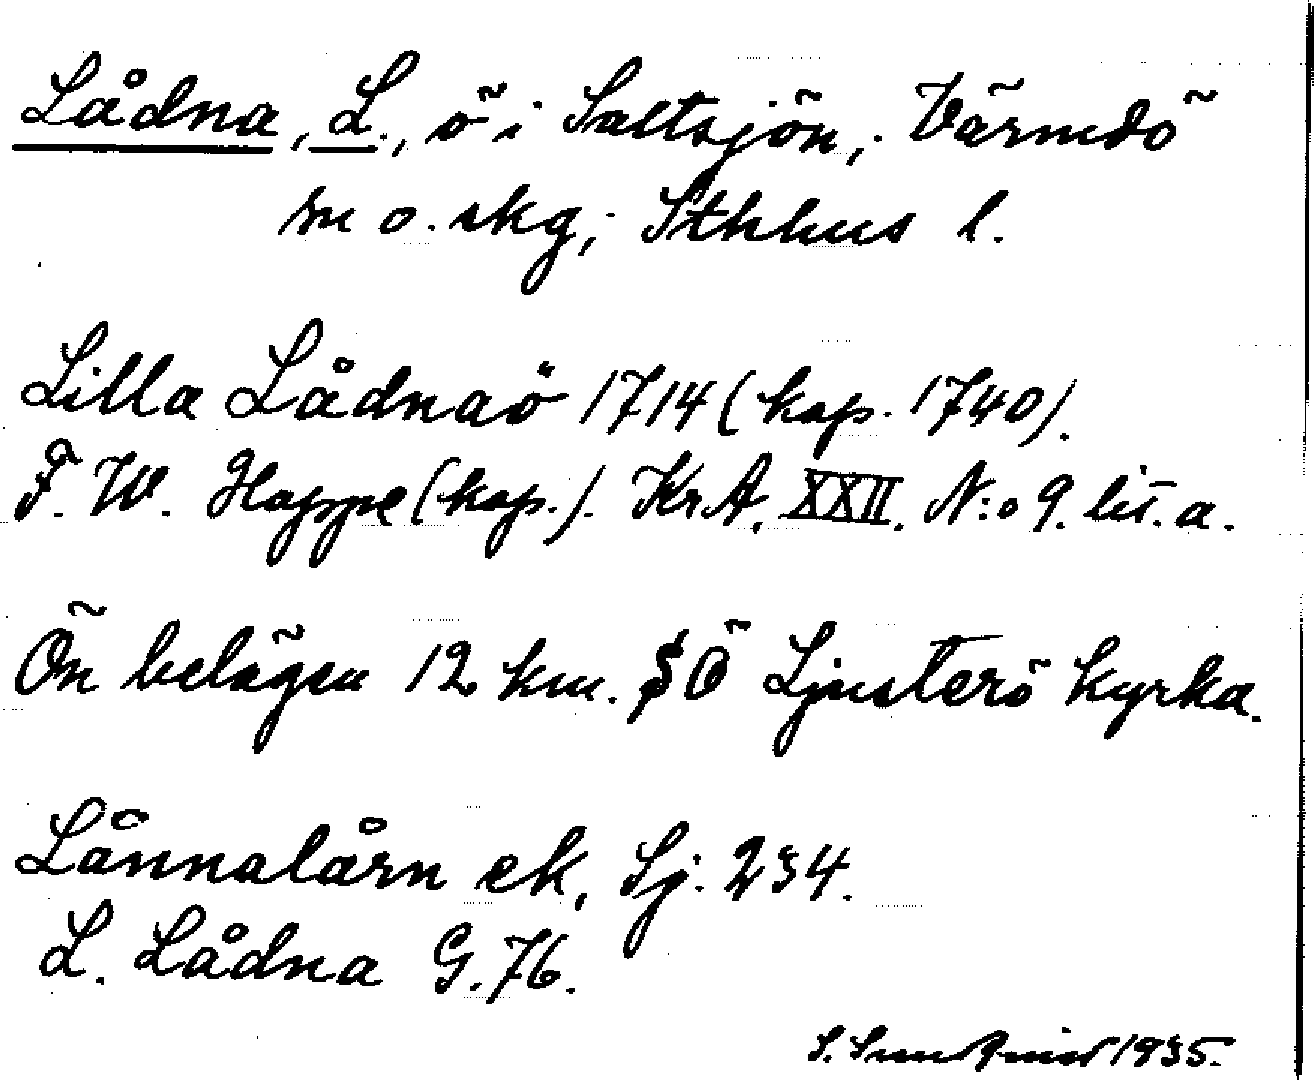 Lådna, L., ö i Saltsjön, Värmdö
sn o. skg; Sthlms l.
Lilla Lådnaö 1714 (kop. 1740).
F. W. Hoppe (kop.). KrA. XXII. N:o 9. lit. a.
Ön belägen 12 km. SÖ Ljusterö kyrka.
Lånnalårn ek, Sj. 234.
L. Lådna G. 76.
S. Sundqvist 1935.